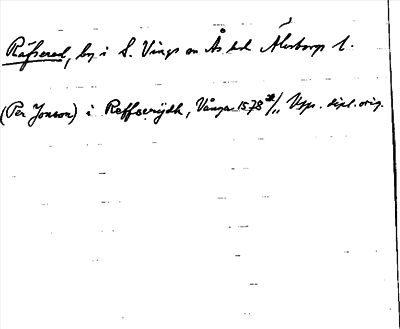 Räfsered, by i S. Vings sn Ås hd Älvsborgs l.
(Per Jonson) i Reffserijdh, Vånga 1578 Upps. dipl. orig.